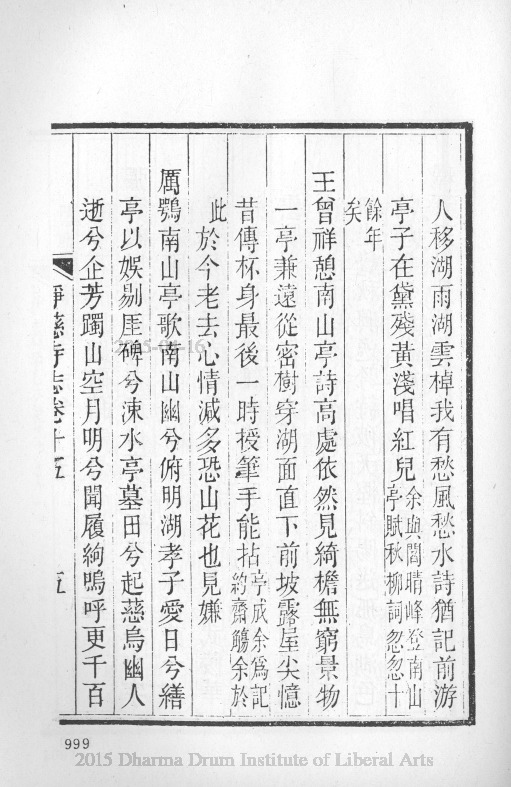 人移湖雨湖雲棹我有愁風愁水詩猶記前游
亭子在黛殘黃淺唱紅兒余與閻晴峰登南山亭賦秋柳詞忽忽十
餘年
矣
王曾祥憩南山亭詩高處依然見綺檐無窮景物
一亭兼遠從密樹穿湖面直下前坡露屋尖憶
昔傳杯身最後一時授筆手能拈亭成余為記約齋觴余於
此於今老去心情減多恐山花也見嫌
厲鶚南山亭歌南山幽兮俯明湖孝子愛日兮繕
亭以娛剔厓碑兮涑水亭墓田兮起慈烏幽人
逝兮企芳躅山空月明兮聞履絇嗚呼更千百
淨慈寺志卷十五 五
999
2015 Dharma Drum Institute of Liberal Arts